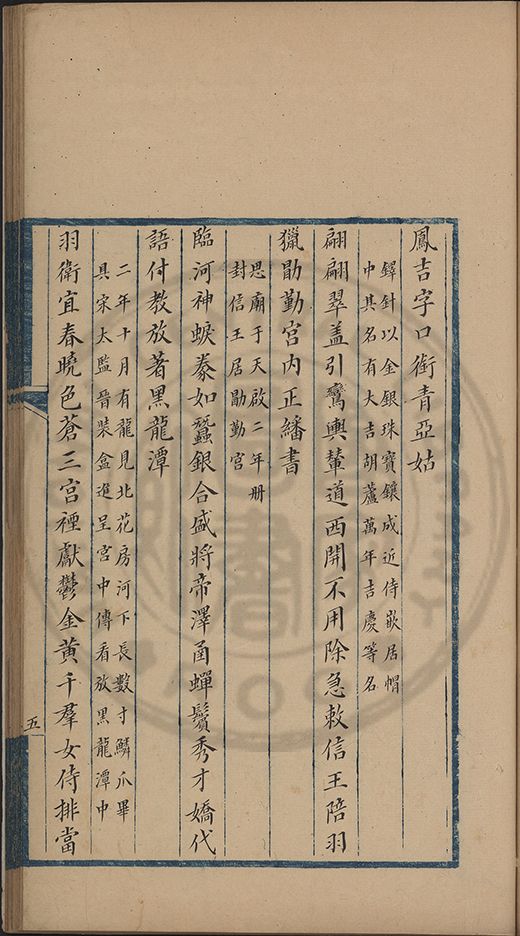 鳳吉字口銜青亞姑
鐸針以金銀珠寶鑲成近侍嵌居帽
中其名有大吉胡蘆萬年吉慶等名
翩翩翠盖引鸞輿輦道西開不用除急敕信王陪羽
獵勖勤宮内正繙書
思廟于天啟二年册
封信王居勖勤宮
臨河神蜧豢如蠶銀合盛將帝澤函蟬鬢秀才嬌代
語付教放著黑龍潭
二年十月有龍見北花房河下長數寸鱗爪畢
具宋太監晉裝盒進呈宮中傳看放黑龍潭中
羽衛宜春曉色蒼三宮裡獻鬱金黄千羣女侍排當
五